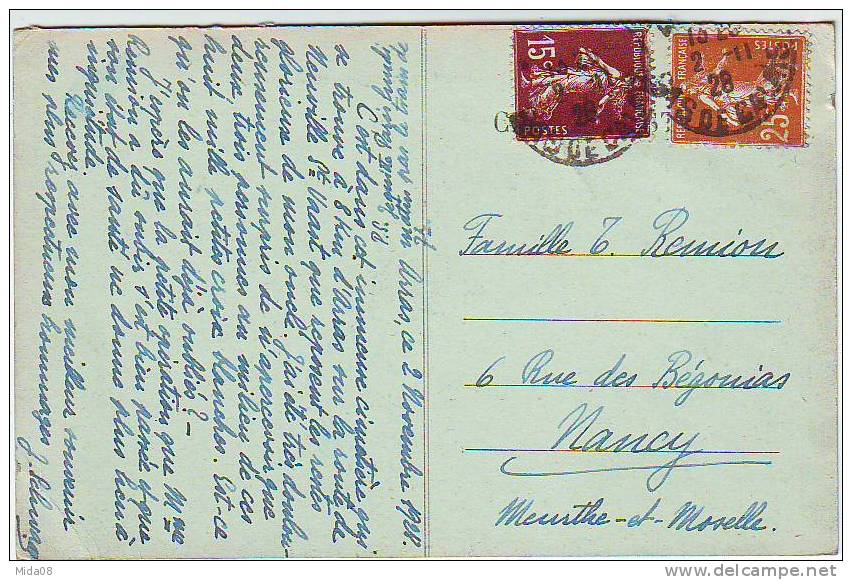 Arras, ce 2 Novembre 1928.
C'est dans cet immense cimetière qui
se trouve à 8 km d'Arras sur la route de
Neuville St Vaast que reposent les restes
glorieux de mon oncle. J'ai été très doulou-
reusement surpris de n'apercevoir que
deux, trois personnes au milieu de ces
huit mille petites croix blanches. Est-ce
qu'on les aurait déjà oubliés? -
J'espère que la petite opération que Mme
Remion a dû subir s'est bien passé et que
son état de santé ne donne plus lieu à
inquiétude.
Recevez avec mon meilleur souvenir
mes plus respectueux hommages J. Schwarz
15c
REPUBLIQUE FRANÇAISE
POSTES
25c
REPUBLIQUE FRANÇAISE
POSTES
2 -11
28
S DE C
Famille T. Remion
6 Rue des Bégonias
Nancy
Meurthe-et-Moselle.
Mida08
www.delcampe.net